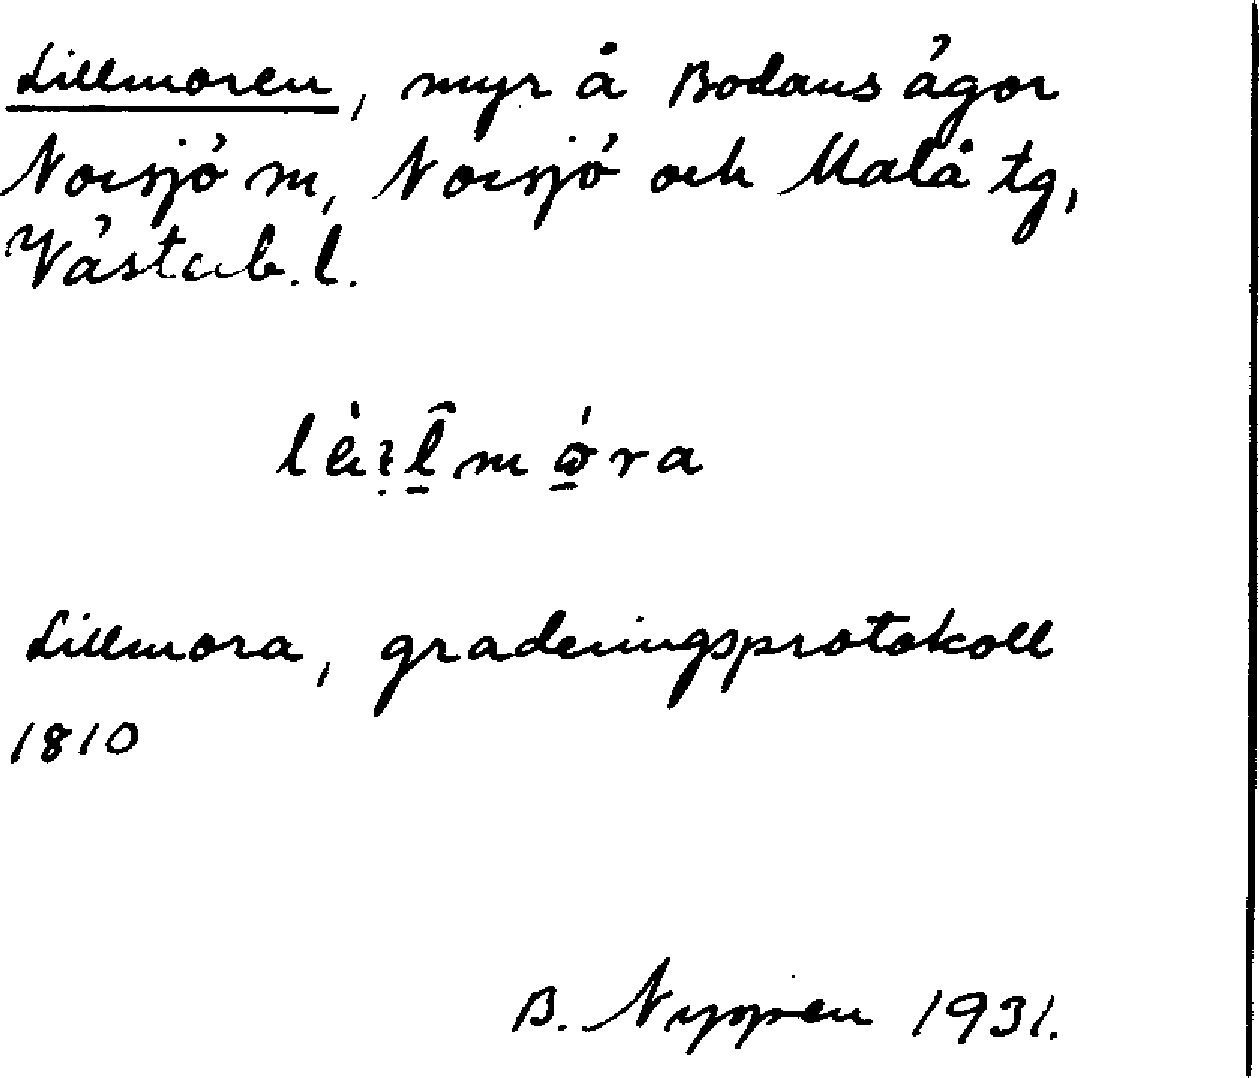 Lillmoren, myr å Bodans ägor
Norsjö sn, Norsjö och Malå tg,
Västerb. l.
Lillmora, graderingsprotokoll
1810
B. 1931.